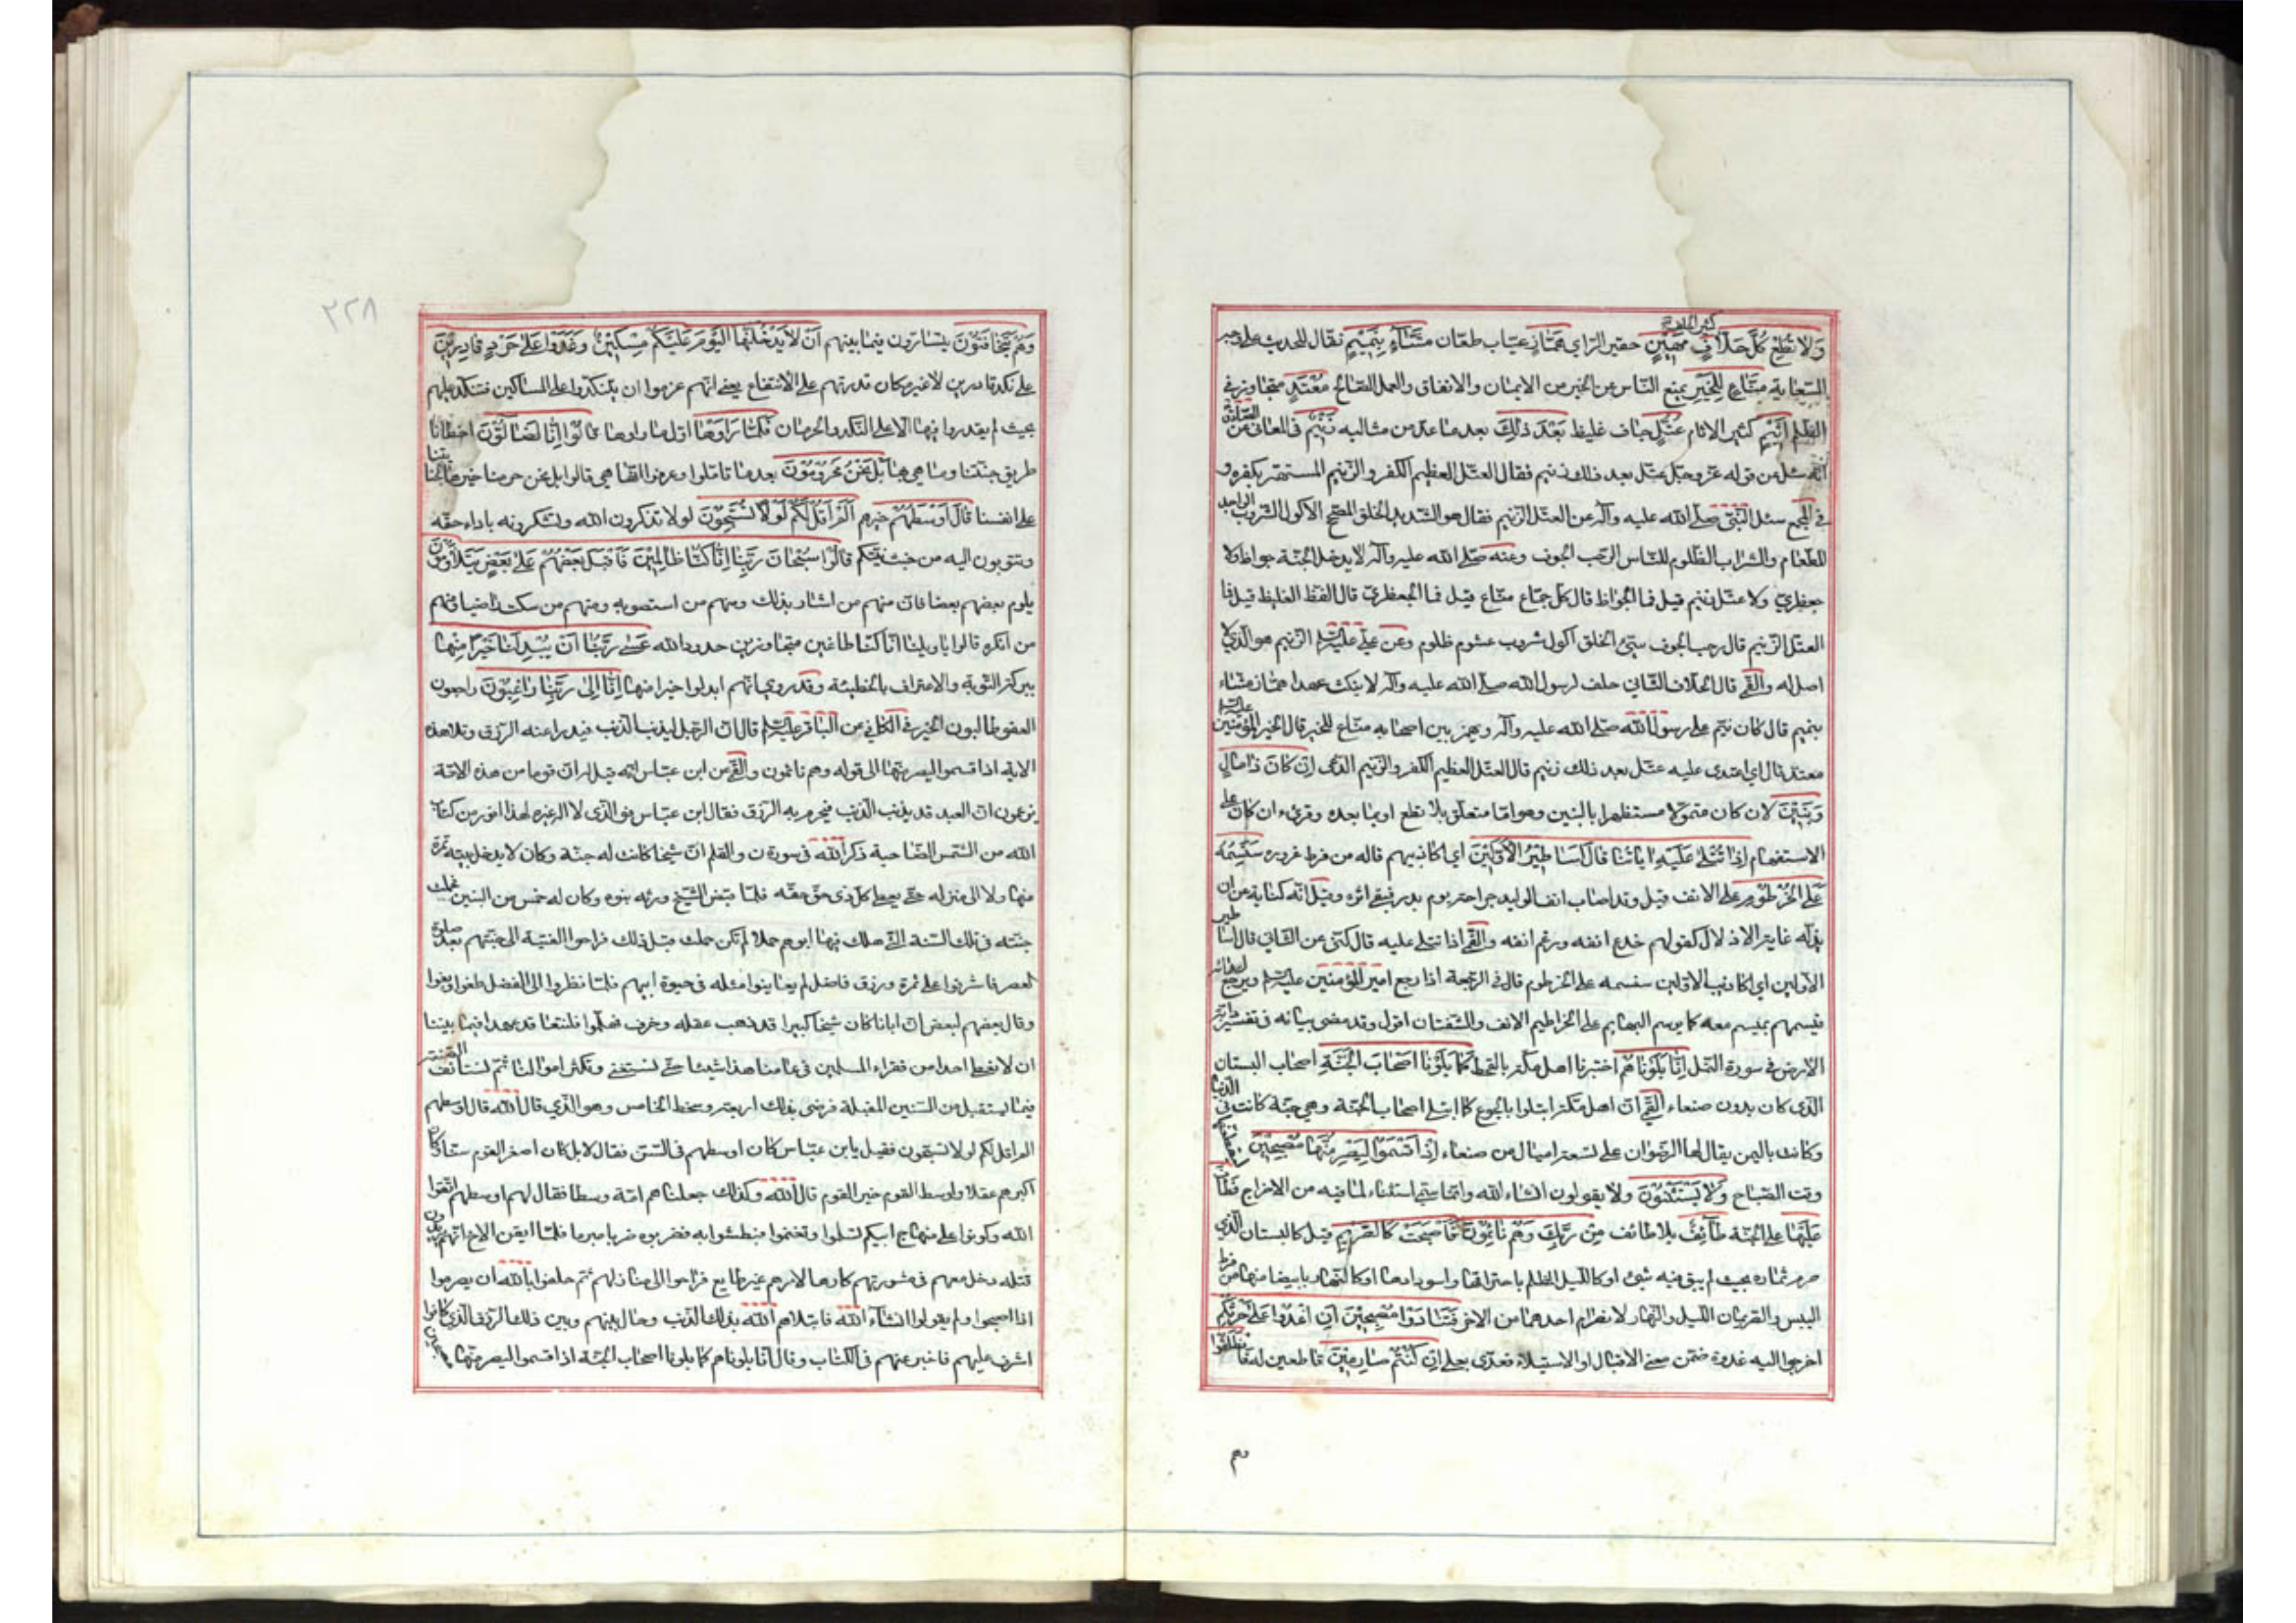 كثير الحلف
وَلا تُطِعْ كُلَّ حَلّافٍ مَهينٍ حقير الرّاي هَمّازٍ عيّاب طعّان مَشّاءٍ بِنَميمٍ نقّال للحديث على وجه
السّعاية مَنّاعٍ لِلْخَيْرِ يمنع النّاس عن الخير من الايمان والانفاق والعمل الصّالح مُعْتَدٍ متجاوز في
الظّلم اَثيمٍ كثير الاثام عُتُلٍّ جاف غليظ بَعْدَ ذلِكَ بعد ما عدّ من مثالبه زَنيمٍ في المعاني عن الصّادق
انّه سئل عن قوله عزّ وجلّ عتل بعد ذلك زنيم فقال العتل العظيم الكفر والزّنيم المستهتر بكفره و
في المجمع سئل النّبيّ صلّى الله عليه وآله عن العتل الزّنيم فقال هو الشّديد الخلق المصحّ الاكول الشّروب الواجد
للطّعام والشّراب الظّلوم للنّاس الرّحب الجوف وعنه صلّى الله عليه وآله لا يدخل الجنّة جواظ ولا
جعظريّ ولا عتل زنيم قيل فما الجوّاظ قال كلّ جمّاع منّاع قيل فما الجعظريّ قال الفظّ الغليظ قيل فما
العتل الزّنيم قال رحب الجوف سيّئ الخلق اكول شروب غشوم ظلوم وعن عليّ عليه السّلم الزّنيم هو الّذي لا
اصل له والقمّي قال الحلّاف الثّاني حلف لرسول الله صلّى الله عليه وآله لا ينكث عهدا همّاز مشّاء
بنميم قال كان ينمّ على رسول الله صلّى الله عليه وآله ويهمز بين اصحابه منّاع للخير قال الخير امير المؤمنين عليه السّلم
معتد قال اي اعتدى عليه عتل بعد ذلك زنيم قال العتل العظيم الكفر والزّنيم الدّعى اِنْ كانَ ذا مالٍ
وَبَنينَ لان كان متموّلا مستظهرا بالبنين وهو امّا متعلّق بلا تطع او بما بعده وقرئ ءان كان على
الاستفهام اِذا تُتْلى عَلَيْهِ اياتُنا قالَ اَساطيرُ الْاَوَّلينَ اي اكاذيبهم قاله من فرط غروره سَنَسِمُهُ
عَلَى الْخُرْطُومِ على الانف قيل وقد اصاب انف الوليد جراحة يوم بدر فبقي اثره وقيل انّه كناية عن ان
يذلّه غاية الاذلال كقولهم جدع انفه ورغم انفه والقمّي اذا تتلى عليه قال كنّى عن الثّاني قال اساطير
الاوّلين اي اكاذيب الاوّلين سنسمه على الخرطوم قال في الرّجعة اذا رجع امير المؤمنين عليه السّلم ويرجع اعدائه
فيسمهم بميسم معه كما يوسم البهايم على الخراطيم الانف والشّفتان اقول وقد مضى بيانه في تفسير دابّة
الارض في سورة النّمل اِنّا بَلَوْناهُمْ اختبرنا اهل مكّة بالقحط كَما بَلَوْنا اَصْحابَ الْجَنَّةِ اصحاب البستان
الّذي كان بدون صنعاء القمّي انّ اهل مكّة ابتلوا بالجوع كما ابتلى اصحاب الجنّة وهي جنّة كانت في الدّنيا
وكانت باليمن يقال لها الرّضوان على تسعة اميال من صنعاء اِذْ اَقْسَمُوا لَيَصْرِمُنَّها مُصْبِحينَ ليقطعنّها
وقت الصّباح وَلا يَسْتَثْنُونَ ولا يقولون انشاء الله وانّما سمّي استثناء لما فيه من الاخراج فَطافَ
عَلَيْها على الجنّة طائِفٌ بلاء طائف مِنْ رَبِّكَ وَهُمْ نائِمُونَ فَاَصْبَحَتْ كَالصَّريمِ قيل كالبستان الّذي
صرم ثماره بحيث لم يبق فيه شيئ او كاللّيل المظلم باحتراقها واسودادها او كالنّهار بابيضاضها من فرط
اليبس والصّريمان اللّيل والنّهار لانصرام احدهما من الاخر فَتَنادَوْا مُصْبِحينَ اَنِ اغْدُوا عَلى حَرْثِكُمْ
اخرجوا اليه غدوة ضمّن معنى الاقبال او الاستيلاء فعدّي بعلى اِنْ كُنْتُمْ صارِمينَ قاطعين له فَانْطَلَقُوا
وهم
٣٢٨
وَهُمْ يَتَخافَتُونَ يتشارّون فيما بينهم اَنْ لا يَدْخُلَنَّهَا الْيَوْمَ عَلَيْكُمْ مِسْكينٌ وَغَدَوْا عَلى حَرْدٍ قادِرينَ
على نكد قادرين لا غير مكان قدرتهم على الانتفاع يعني انّهم عزموا ان يتنكّدوا على المساكين فتنكّد عليهم
بحيث لم يقدروا فيها الّا على النّكد والحرمان فَلَمّا رَاَوْها اوّل ما راوها قالُوا اِنّا لَضالُّونَ اخطانا
طريق جنّتنا وما هي بها بَلْ نَحْنُ مَحْرُومُونَ بعد ما تامّلوا وعرفوا انّها هي قالوا بل نحن حرمنا خيرها لجنايتنا
على انفسنا قالَ اَوْسَطُهُمْ خيرهم اَلَمْ اَقُلْ لَكُمْ لَوْلا تُسَبِّحُونَ لولا تذكرون الله وتشكرونه باداء حقّه
وتتوبون اليه من خبث نيّتكم قالُوا سُبْحانَ رَبِّنا اِنّا كُنّا ظالِمينَ فَاَقْبَلَ بَعْضُهُمْ عَلى بَعْضٍ يَتَلاوَمُونَ
يلوم بعضهم بعضا فانّ منهم من اشار بذلك ومنهم من استصوبه ومنهم من سكت راضيا ومنهم
من انكره قالوا يا ويلنا انّا كنّا طاغين متجاوزين حدود الله عَسى رَبُّنا اَنْ يُبْدِلَنا خَيْرًا مِنْها
ببركة التّوبة والاعتراف بالخطيئة وقد روي انّهم ابدلوا خيرا منها اِنّا اِلى رَبِّنا راغِبُونَ راجون
العفو طالبون الخير في الكافي عن الباقر عليه السّلم قال انّ الرّجل ليذنب الذّنب فيدرا عنه الرّزق وتلا هذه
الاية اذ اقسموا ليصرمنّها الى قوله وهم نائمون والقمّي عن ابن عبّاس انّه قيل له انّ قوما من هذه الامّة
يزعمون انّ العبد قد يذنب الذّنب فيحرم به الرّزق فقال ابن عبّاس فو الّذي لا اله غيره لهذا انور من كتاب
الله من الشّمس الضّاحية ذكر الله في سورة ن والقلم انّ شيخا كانت له جنّة وكان لا يدخل بيته ثمرة
منها ولا الى منزله حتّى يعطي كلّ ذي حقّ حقّه فلمّا قبض الشّيخ ورثه بنوه وكان له خمس من البنين فحملت
جنّته في تلك السّنة الّتي هلك فيها ابوهم حملا لم تكن حملت قبل ذلك فراحوا الفتية الى جنّتهم بعد صلوة
العصر فاشرفوا على ثمرة ورزق فاضل لم يعاينوا مثله في حيوة ابيهم فلمّا نظروا الى الفضل طغوا وبغوا
وقال بعضهم لبعض انّ ابانا كان شيخا كبيرا قد ذهب عقله وخرف فهلمّوا فلنتعاقد عهدا فيما بيننا
ان لا نعطي احدا من فقراء المسلمين في عامنا هذا شيئا حتّى نستغني وتكثر اموالنا ثمّ نستانف الصّنعة
فيما يستقبل من السّنين المقبلة فرضي بذلك اربعة وسخط الخامس وهو الّذي قال الله قال اوسطهم
الم اقل لكم لولا تسبّحون فقيل يابن عبّاس كان اوسطهم في السّنّ فقال لا بل كان اصغر القوم سنّا وكان
اكبرهم عقلا واوسط القوم خير القوم قال الله وكذلك جعلناهم امّة وسطا فقال لهم اوسطهم اتّقوا
الله وكونوا على منهاج ابيكم تسلموا وتغنموا فبطشوا به فضربوه ضربا مبرحا فلمّا ايقن الاخ انّهم يريدون
قتله دخل معهم في مشورتهم كارها لامرهم غير طايع فراحوا الى منازلهم ثمّ حلفوا بالله ان يصرموا
اذا اصبحوا ولم يقولوا انشاء الله فابتلاهم الله بذلك الذّنب وحال بينهم وبين ذلك الرّزق الّذي كانوا
اشرف عليهم فاخبر عنهم في الكتاب وقال انّا بلوناهم كما بلونا اصحاب الجنّة اذ اقسموا ليصرمنّها مصبحين